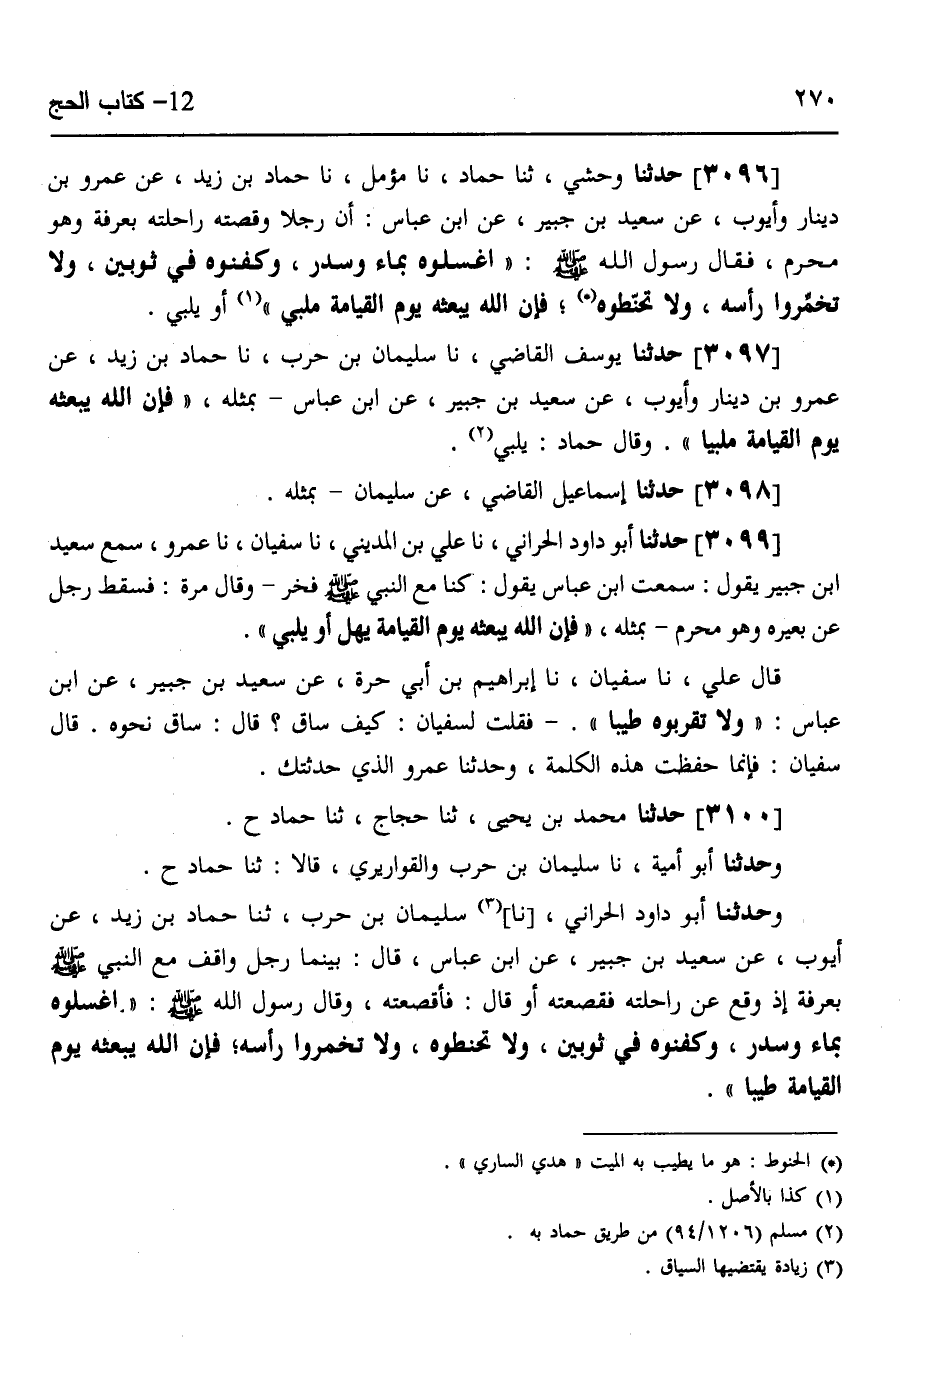 ٢٧٠
12- كتاب الحج
[٣٠٩٦] حدثنا وحشي ، ثنا حماد ، نا مؤمل ، نا حماد بن زيد ، عن عمرو بن
دينار وأيوب ، عن سعيد بن جبير ، عن ابن عباس : أن رجلا وقصته راحلته بعرفة وهو
محرم ، فقال رسول الله ﷺ : « اغسلوه بماء وسدر ، وكفنوه في ثوبين ، ولا
تخمِّروا رأسه ، ولا تحنّطوه(*) ؛ فإن الله يبعثه يوم القيامة ملبي »(١) أو يلبي .
[٣٠٩٧] حدثنا يوسف القاضي ، نا سليمان بن حرب ، نا حماد بن زيد ، عن
عمرو بن دينار وأيوب ، عن سعيد بن جبير ، عن ابن عباس – بمثله ، « فإن الله يبعثه
يوم القيامة ملبيا » . وقال حماد : يلبي(٢) .
[٣٠٩٨] حدثنا إسماعيل القاضي ، عن سليمان – بمثله .
[٣٠٩٩] حدثنا أبو داود الحراني ، نا علي بن المديني ، نا سفيان ، نا عمرو ، سمع سعيد
ابن جبير يقول : سمعت ابن عباس يقول : كنا مع النبي ﷺ فخر – وقال مرة : فسقط رجل
عن بعيره وهو محرم – بمثله ، « فإن الله يبعثه يوم القيامة يهل أو يلبي » .
قال علي ، نا سفيان ، نا إبراهيم بن أبي حرة ، عن سعيد بن جبير ، عن ابن
عباس : « ولا تقربوه طيبا » . – فقلت لسفيان : كيف ساق ؟ قال : ساق نحوه . قال
سفيان : فإنما حفظت هذه الكلمة ، وحدثنا عمرو الذي حدثتك .
[٣١٠٠] حدثنا محمد بن يحيى ، ثنا حجاج ، ثنا حماد ح .
وحدثنا أبو أمية ، نا سليمان بن حرب والقواريري ، قالا : ثنا حماد ح .
وحدثنا أبو داود الحراني ، [نا](٣) سليمان بن حرب ، ثنا حماد بن زيد ، عن
أيوب ، عن سعيد بن جبير ، عن ابن عباس ، قال : بينما رجل واقف مع النبي ﷺ
بعرفة إذ وقع عن راحلته فقصعته أو قال : فأقصعته ، وقال رسول الله ﷺ : « اغسلوه
بماء وسدر ، وكفنوه في ثوبين ، ولا تحنطوه ، ولا تخمروا رأسه؛ فإن الله يبعثه يوم
القيامة طيبا » .
(*) الحنوط : هو ما يطيب به الميت « هدي الساري » .
(١) كذا بالأصل .
(٢) مسلم (٩٤/١٢٠٦) من طريق حماد به .
(٣) زيادة يقتضيها السياق .